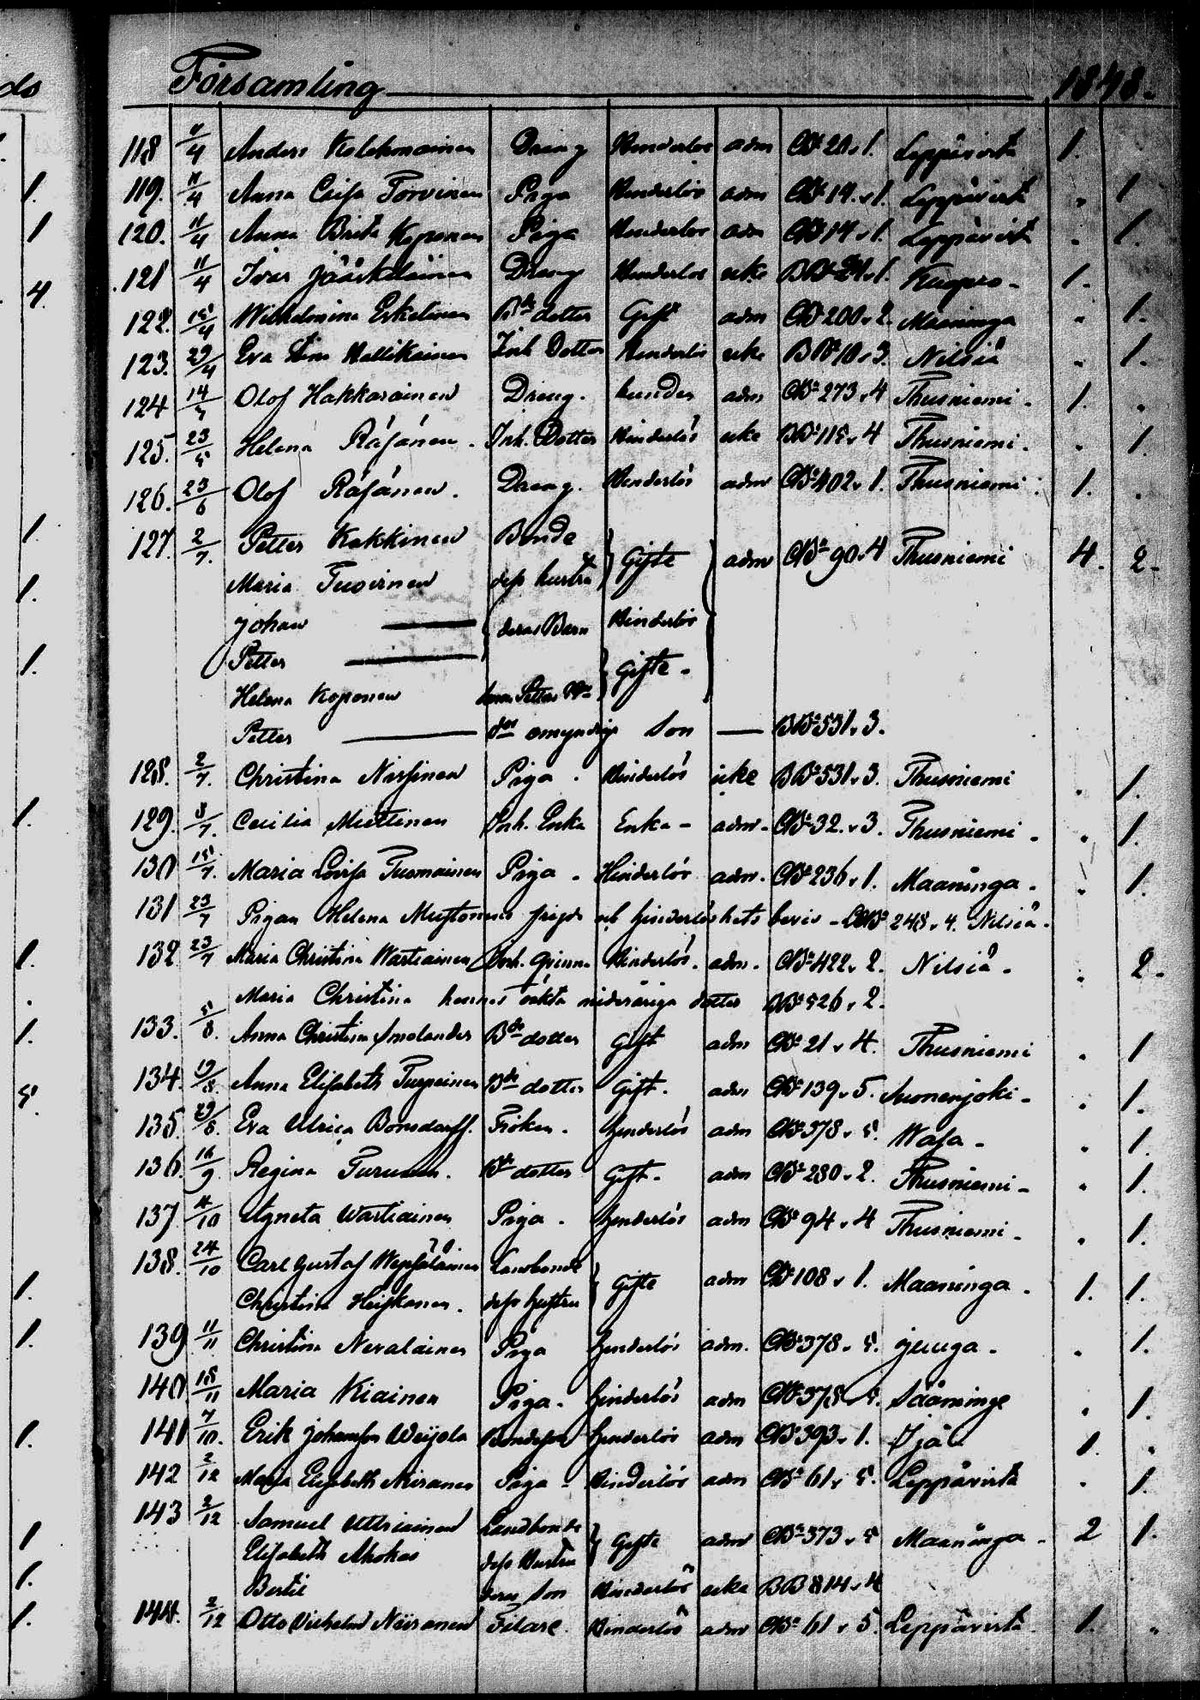 ds Församling 1848.
118 11/4 Anders Kolehmainen Dreng Hinderlös adm CB 20 v 1. Leppävirta 1.
119. 11/4 Anna Caisa Torvinen Piga Hinderlös adm CB 14 v 1. Leppävirta . 1.
120. 11/4 Anna Brita Koponen Piga Hinderlös adm CB 14 v 1. Leppävirta . 1.
121 11/4 Ivar Jääskeläinen Dreng Hinderlös icke BB 24 v 1. Kuopio. 1.
122. 15/4 Wilhelmina Eskelinen Bde dotter Gift adm CB 200 v 2. Maaninga . 1.
123. 29/4 Eva Lena Hallikainen Inh Dotter Hinderlös icke BB 10 v 3. Nilsiä . 1.
124 14/5 Olof Hakkarainen Dreng. hinder adm CB 273 v 4 Thusniemi. 1. .
125. 23/5 Helena Räsänen. Inh. Dotter Hinderlös icke BB 115 v 4 Thusniemi. . 1.
126. 23/6 Olof Räsänen. Dreng. Hinderlös adm CB 402 v 1. Thusniemi. 1. .
127. 2/7. Petter Kakkinen Bonde Gifte adm CB 90 v 4 Thusniemi 4. 2.
Maria Tuovinen dess hustru
Johan — deras Barn Hinderlös
Petter — Gifte.
Helena Koponen
Petter — omyndige Son — BB 531 v 3.
128. 2/7. Christina Nissinen Piga. Hinderlös icke BB 531 v 3. Thusniemi . 1.
129. 8/7. Cecilia Miettinen Inh. Enka Enka adm. CB 32. v 3. Thusniemi. . 1.
130 15/7. Maria Lovisa Tuomainen Piga. Hinderlös adm. CB 236 v 1. Maaninga. . 1.
131 23/7 Pigan Helena frejde och hinderlöshets bevis CB 248 v 4. Nilsiä.
132 23/7 Maria Christina Wartiainen Inh. qvinna Hinderlös. adm. CB 422 v 2. Nilsiä. . 2.
Maria Christina hennes oäkta dotter BB 526 v 2.
133. 5/8. Anna Christina Smolander Bde dotter Gift adm CB 21 v 4. Thusniemi . 1
134. 19/8 Anna Elisabeth Turpeinen Bde dotter Gift. adm CB 139 v 5. Suonenjoki. . 1.
135. 29/8. Eva Ulrica Bonsdorff. Fröken. hinderlös adm CB 378 v 5. Wasa. . 1.
136. 16/9. Regina Turunen. Bde dotter Gift. adm CB 280 v 2. Thusniemi. . 1.
137. 4/10 Agneta Wartiainen Piga. hinderlös adm CB 94 v 4 Thusniemi. . 1.
138. 24/10 Carl Gustaf Wepsäläinen Landbonde Gifte adm CB 108 v 1. Maaninga. 1. 1.
Christina Heiskanen. dess hustru
139 11/11 Christina Nevalainen Piga hinderlös adm. CB 378 v 5. . 1.
140 18/11 Maria Kiainen Piga. hinderlös adm CB 378 v 5. Sääminge . 1.
141 7/10. Erik Johansson Weijola Bondeson hinderlös adm CB 393 v 1. Ijå 1. .
142 2/12 Maria Elisabeth Niiranen Piga. Hinderlös adm CB 61 v 5. Leppävirta . 1.
143 2/12 Samuel Landbonde Gifte adm CB 373 v 5 Maaninga. 2 1.
Elisabeth Ahokas dess Hustru
Bertil deras son Hinderlös icke BB 814 v 4
144. 2/12 Otto Vilhelm Niiranen Filare. Hinderlös adm CB 61 v 5. Leppävirta 1. .